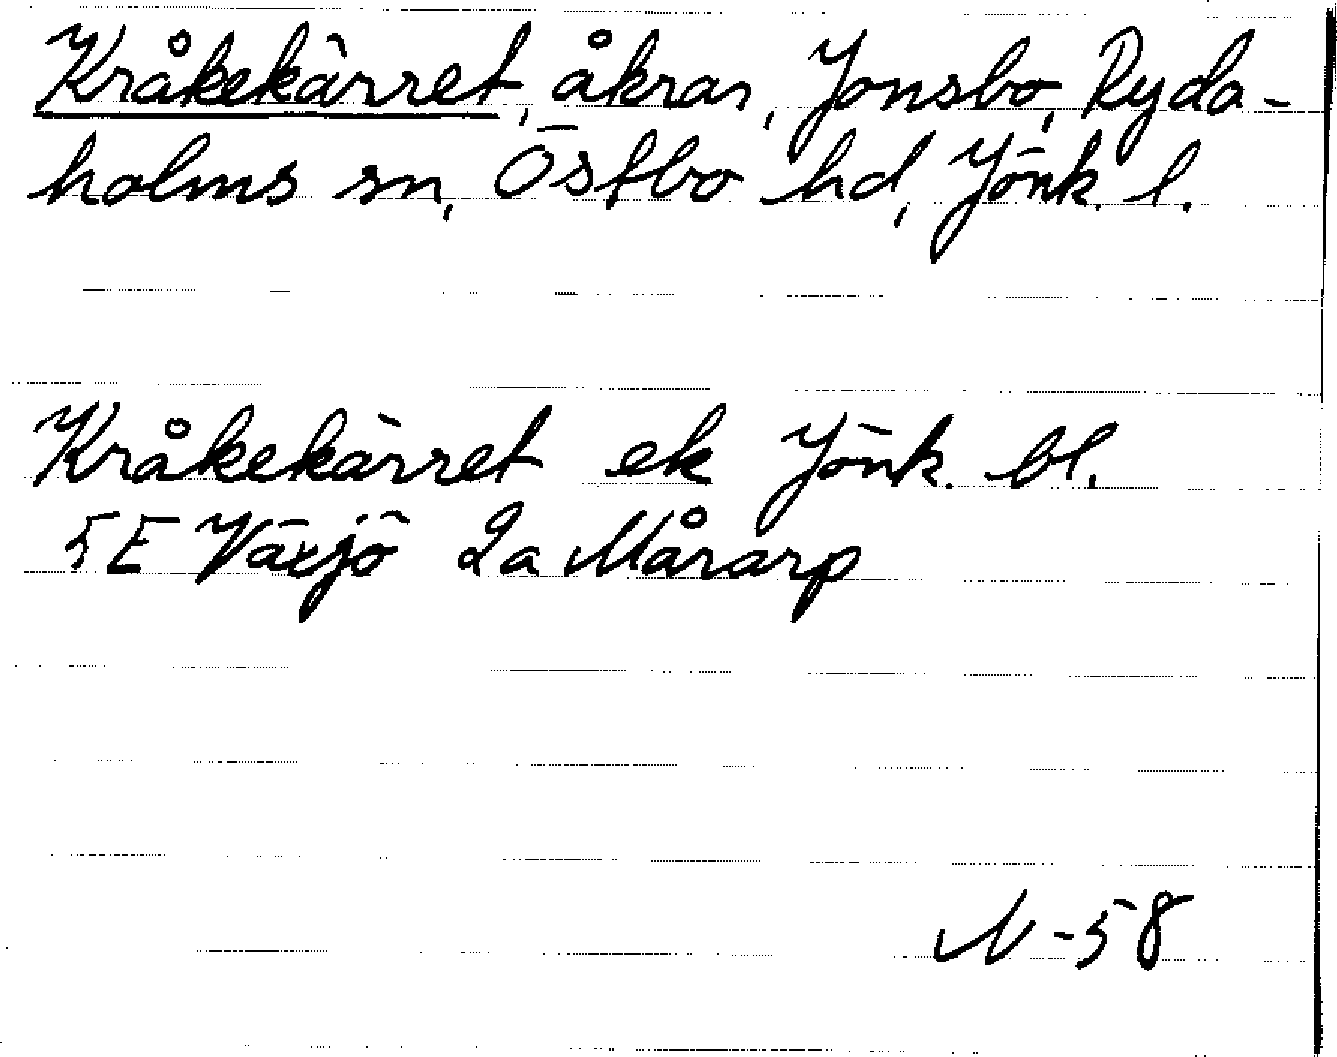 Kråkekärret, åkrar, Jonsbo, Ryda-
holms sn, Östbo hd, Jönk. l.
Kråkekärret ek Jönk. bl.
5E Växjö 2a Mårarp
N-58